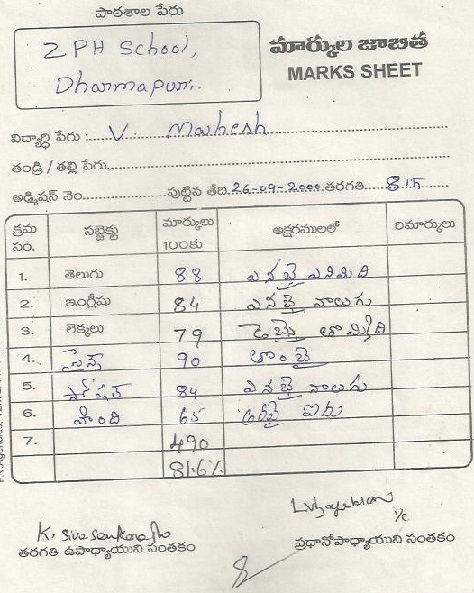 పాఠశాల పేరు
ZPH School,
Dharmapuri.
మార్కుల జాబిత
MARKS SHEET
విద్యార్థి పేరు : V. Mahesh
తండ్రి / తల్లి పేరు
అడ్మిషన్ నెం. పుట్టిన తేది. 26-09-2000 తరగతి 8th
క్రమ సం. సబ్జెక్టు మార్కులు 100కు అక్షరములలో రిమార్కులు
1. తెలుగు 88 ఎనభై ఎనిమిది
2. ఇంగ్లీషు 84 ఎనభై నాలుగు
3. లెక్కలు 79 డెబ్బై తొమ్మిది
4. సైన్స్ 90 తొంబై
5. సోషల్ 84 ఎనభై నాలుగు
6. హింది 65 అరవై ఐదు
7. 490
81.6%
K. Siva
తరగతి ఉపాధ్యాయుని సంతకం
i/c
ప్రధానోపాధ్యాయుని సంతకం